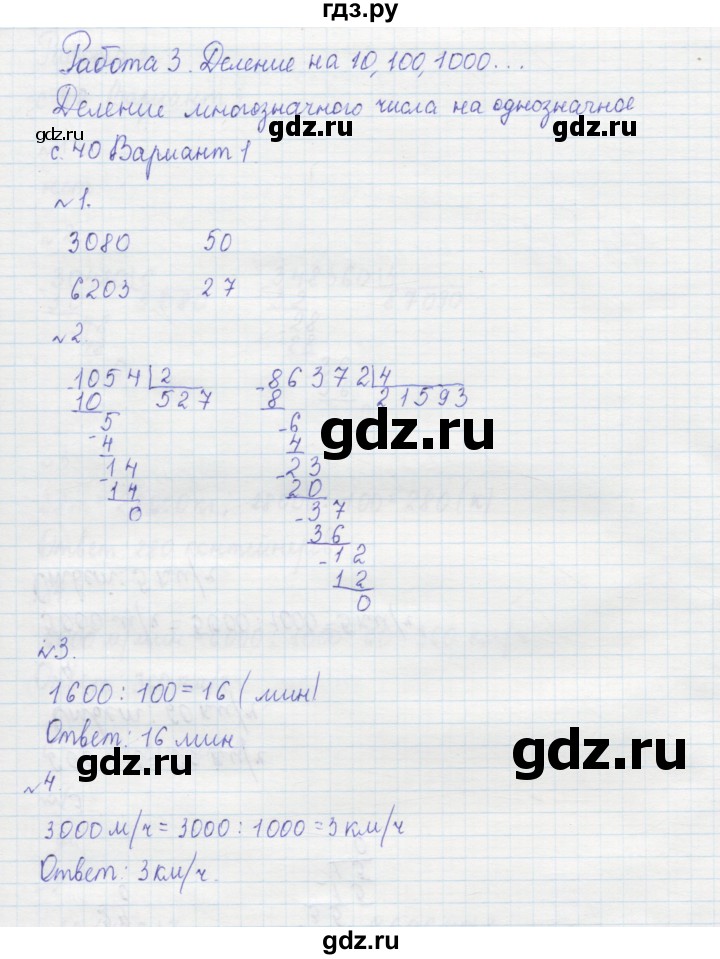 гдз.ру
Работа 3. Деление на 10, 100, 1000...
Деление многозначного числа на однозначное
gdz.ru gdz.ru
с. 40 Вариант 1
№1.
3080 50
6203 27
№2
1054 | 2 86372 | 4
10 527 8 21593
5 6
4 4
gdz.ru
14 23
14 20
0 37
36
12
12
0
№3.
1600 : 100 = 16 (мин)
Ответ: 16 мин
gdz.ru
gdz.ru
№4
3000 м/ч = 3000 : 1000 = 3 км/ч
Ответ: 3 км/ч.
gdz.ru